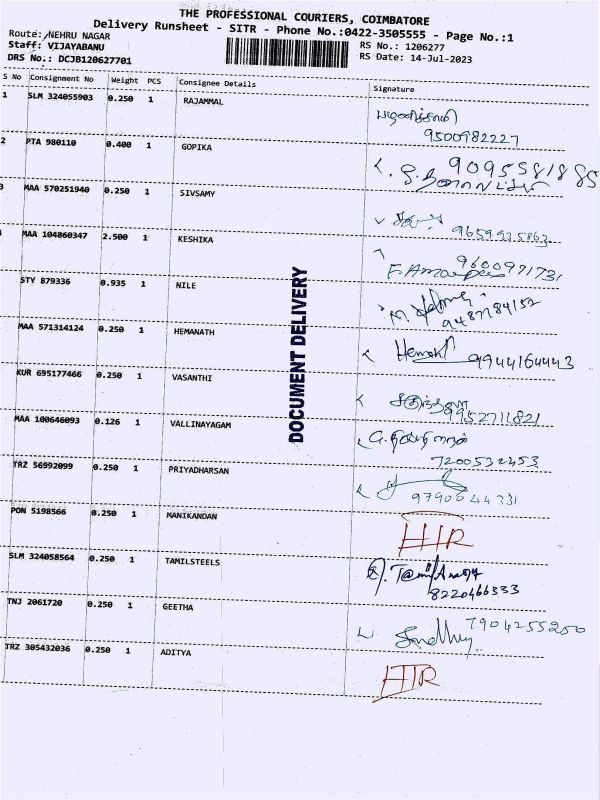 THE PROFESSIONAL COURIERS, COIMBATORE
Delivery Runsheet - SITR - Phone No.:0422-3505555 - Page No.:1
Route: NEHRU NAGAR
Staff: VIJAYABANU
DRS No.: DCJB120627701
RS No.: 1206277
RS Date: 14-Jul-2023
S No Consignment No Weight PCS Consignee Details Signature
1 SLM 324055903 0.250 1 RAJAMMAL பழனிச்சாமி
9500982227
2 PTA 980110 0.400 1 GOPIKA 9095581885
3 MAA 570251940 0.250 1 SIVSAMY 9659935863
4 MAA 104860347 2.500 1 KESHIKA 9600971731
STY 879336 0.935 1 NILE 9487784152
MAA 571314124 0.250 1 HEMANATH 9944164443
KUR 695177466 0.250 1 VASANTHI 9952711821
MAA 100646093 0.126 1 VALLINAYAGAM
7200532453
TRZ 56992099 0.250 1 PRIYADHARSAN 9790644331
PON 5198566 0.250 1 MANIKANDAN HTR
SLM 324058564 0.250 1 TAMILSTEELS
8220466333
TNJ 2061720 0.250 1 GEETHA 7904255250
Sandhiya
TRZ 305432036 0.250 1 ADITYA HTR
DOCUMENT DELIVERY